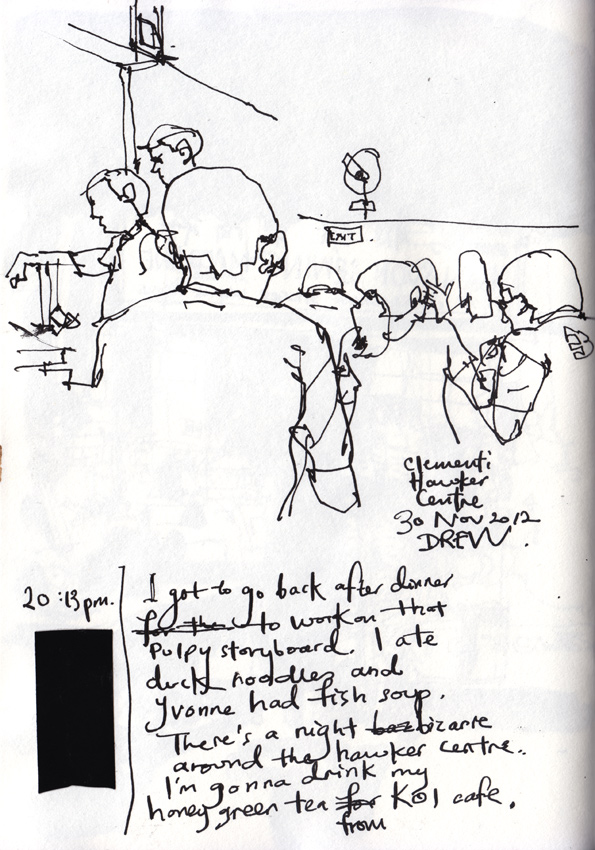 EXIT
Clementi
Hawker
Centre
30 Nov 2012
DREW.
20:13pm.
I got to go back after dinner
for the to work on that
Pulpy storyboard. I ate
duck noodles and
Yvonne had fish soup.
There's a night baz bizarre
around the hawker centre..
I'm gonna drink my
honey green tea for KOI cafe.
from